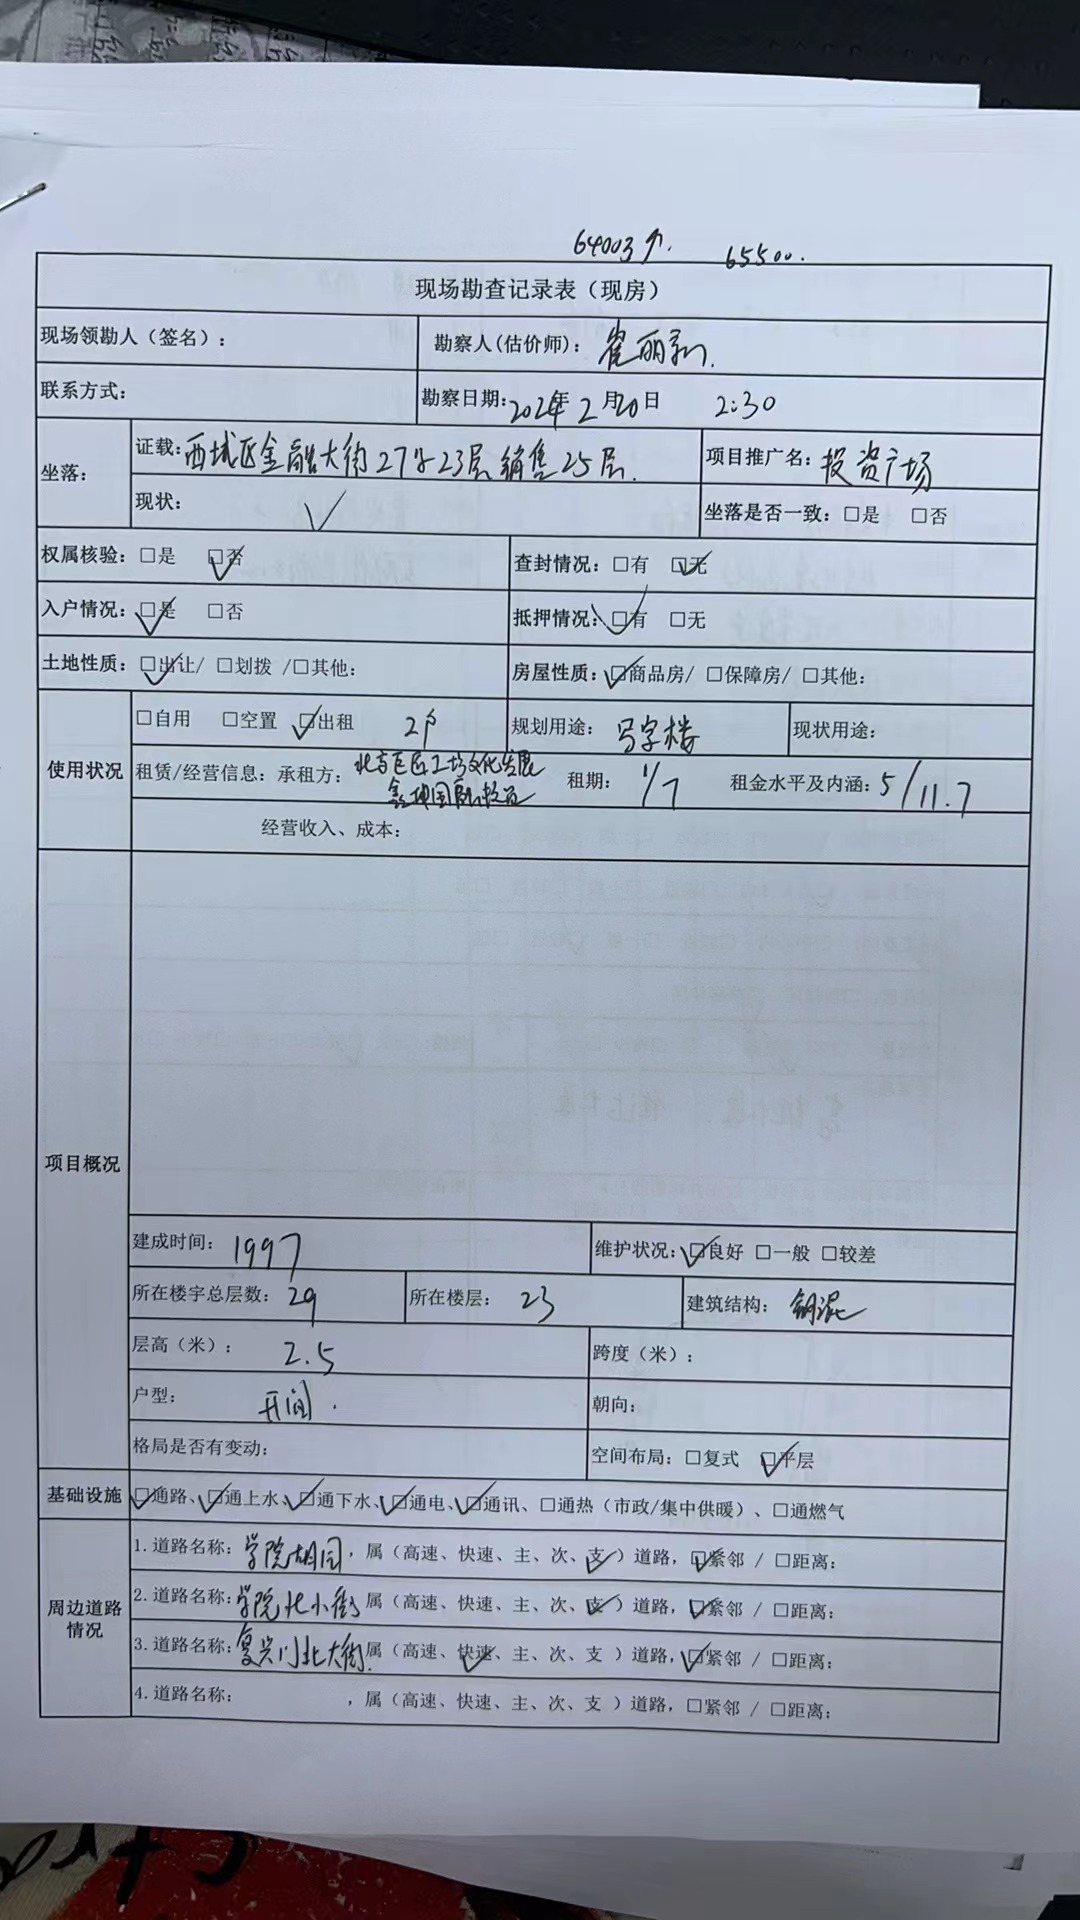 64003个. 65500.
现场勘查记录表（现房）
现场领勘人（签名）： 勘察人(估价师)： 崔丽
联系方式： 勘察日期: 2024年 2月20日 2:30
坐落： 证载: 西城区金融大街27号23层 销售25层. 项目推广名: 投资广场
现状： 坐落是否一致：□是 □否
权属核验：□是 ☑否 查封情况：□有 ☑无
入户情况：☑是 □否 抵押情况：☑有 □无
土地性质：☑出让/ □划拨 /□其他： 房屋性质：☑商品房/ □保障房/ □其他：
使用状况 □自用 □空置 ☑出租 2户 规划用途： 写字楼 现状用途：
租赁/经营信息：承租方： 北京 工场文化发展 租期： 1/7 租金水平及内涵: 5/11.7
国际投资
经营收入、成本：
项目概况
建成时间： 1997 维护状况：☑良好 □一般 □较差
所在楼宇总层数： 29 所在楼层： 23 建筑结构： 钢混
层高（米）： 2.5 跨度（米）：
户型： 开间. 朝向：
格局是否有变动： 空间布局：□复式 ☑平层
基础设施 ☑通路、☑通上水、☑通下水、☑通电、☑通讯、□通热（市政/集中供暖）、□通燃气
周边道路情况 1.道路名称: 学院胡同，属（高速、快速、主、次、支✓）道路，☑紧邻 / □距离：
2.道路名称: 学院北小街 属（高速、快速、主、次、支✓）道路，☑紧邻 / □距离：
3.道路名称: 复兴门北大街. 属（高速、快速✓、主、次、支 ）道路，☑紧邻 / □距离：
4.道路名称： ，属（高速、快速、主、次、支 ）道路，□紧邻 / □距离：